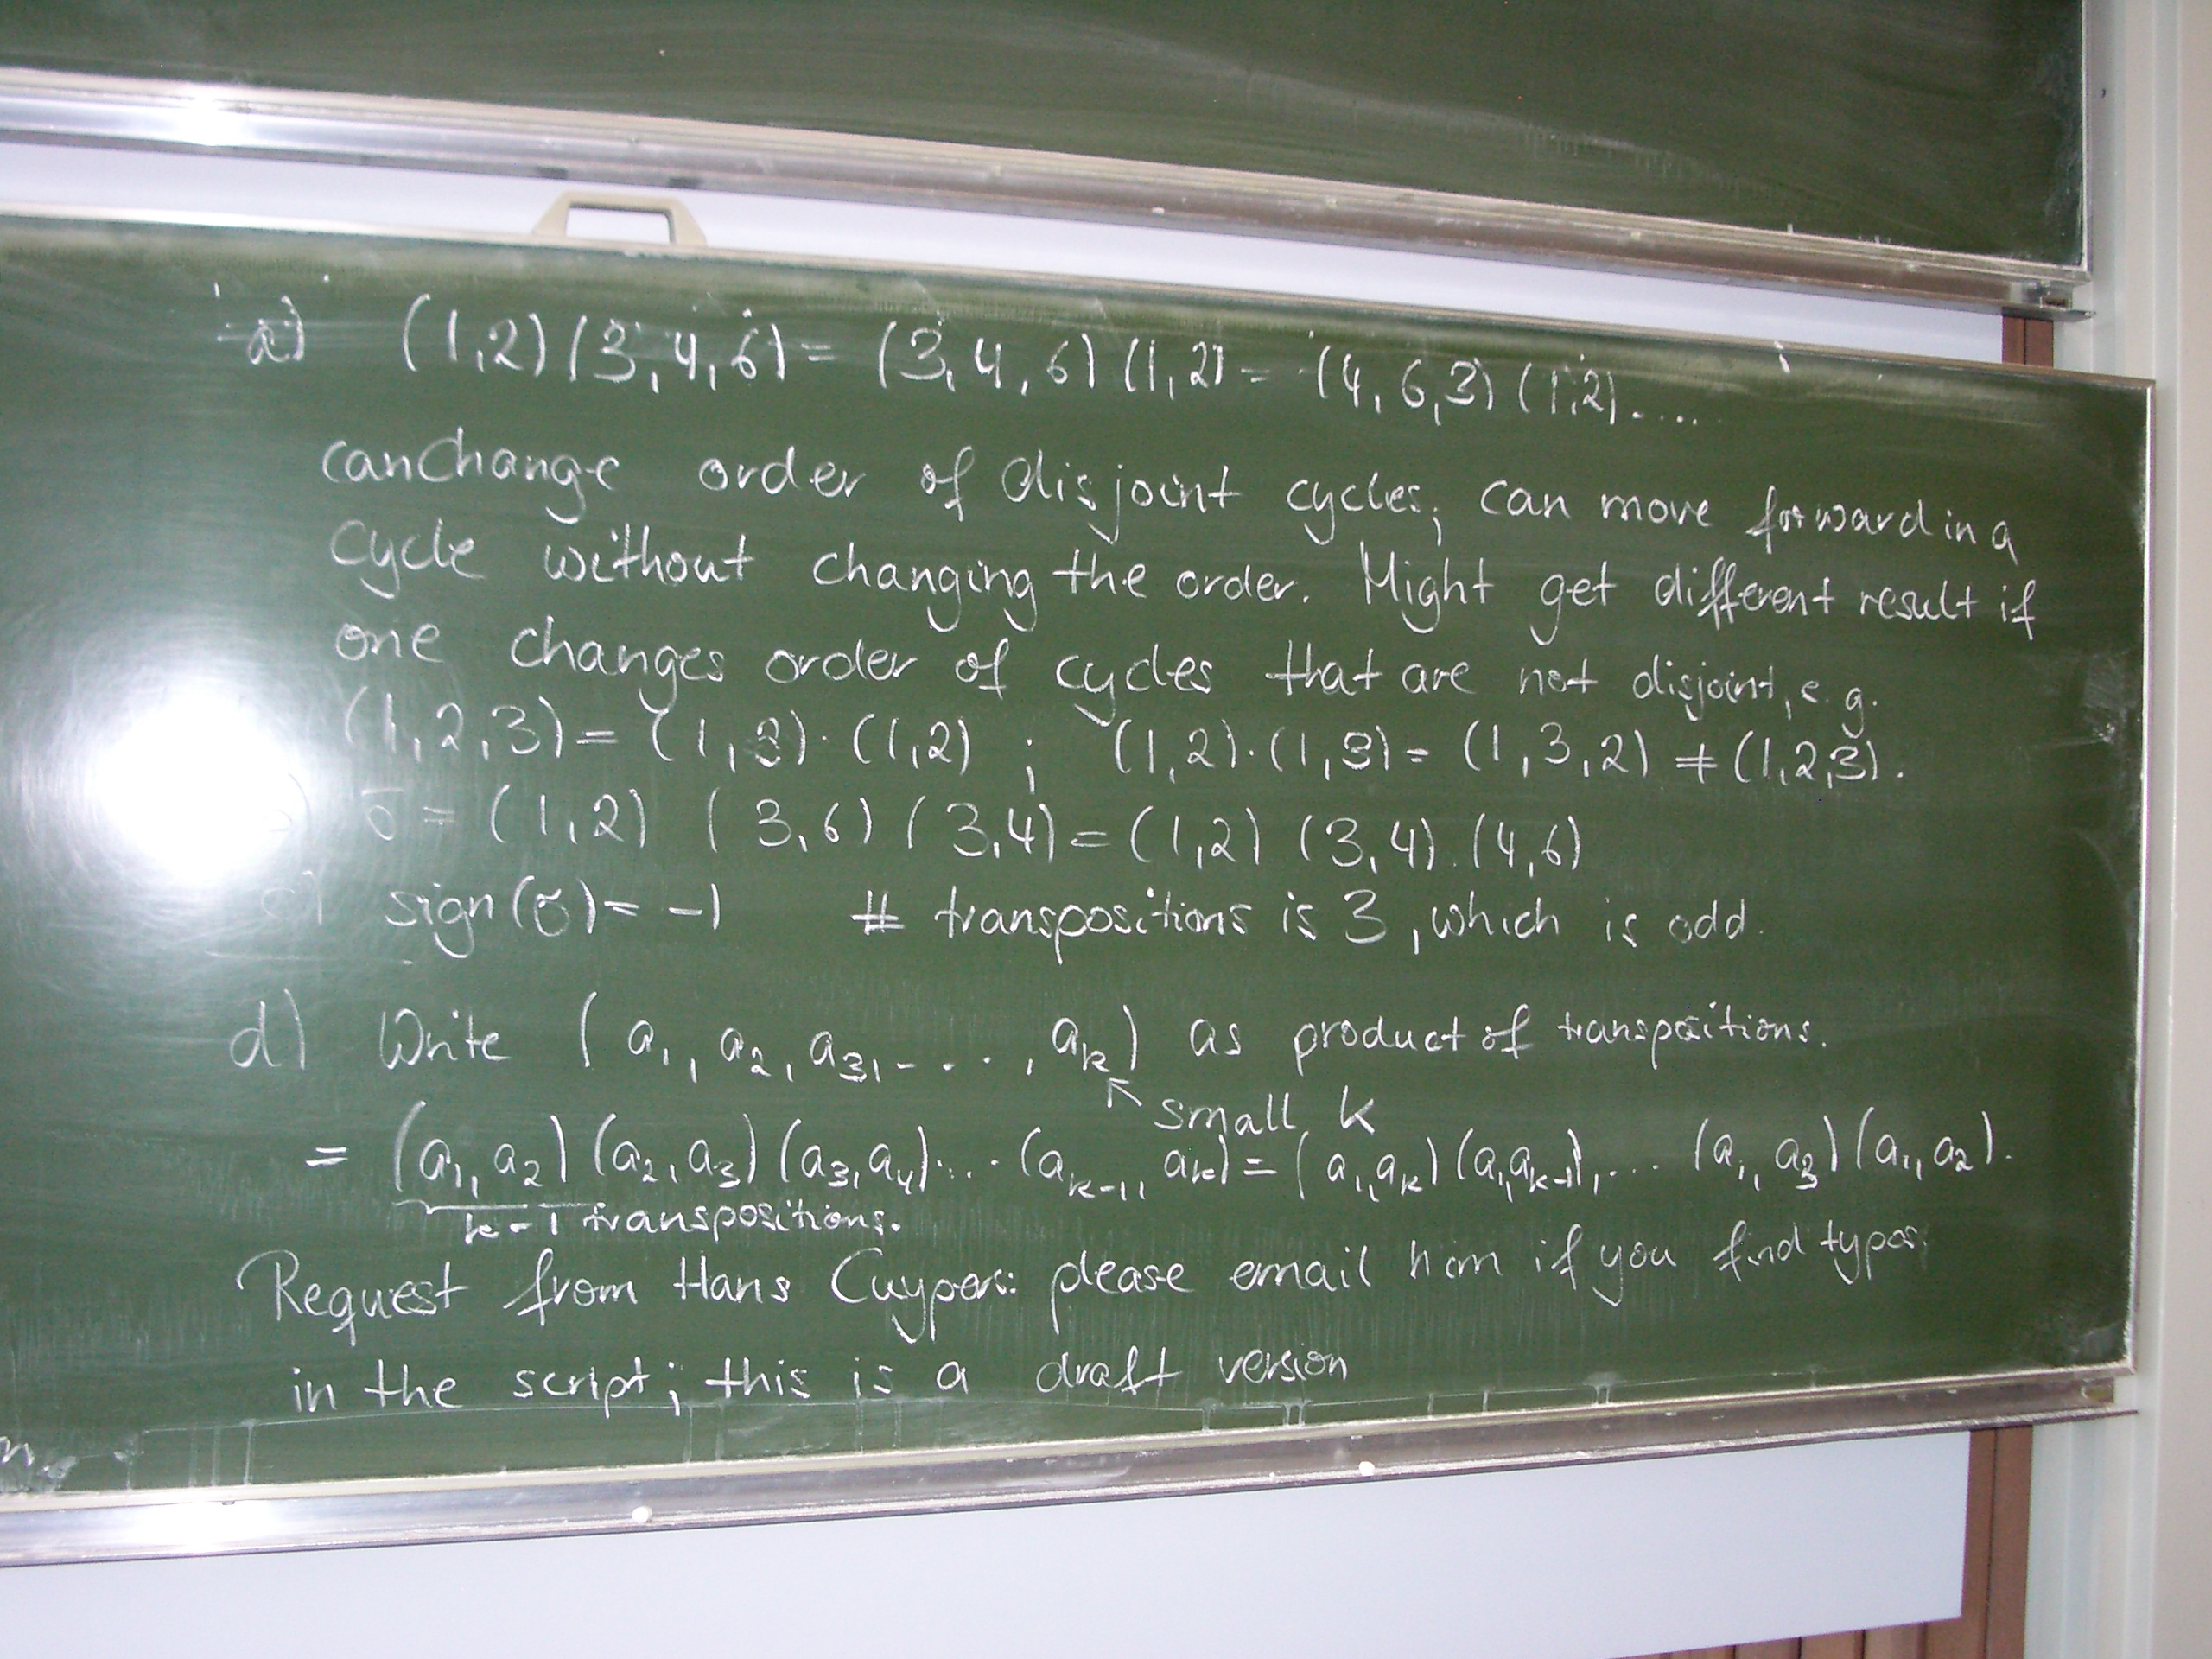 a) (1,2)(3,4,6) = (3,4,6)(1,2) = (4,6,3)(1,2)....
can change order of disjoint cycles; can move forward in a
cycle without changing the order. Might get different result if
one changes order of cycles that are not disjoint, e.g.
(1,2,3) = (1,3)·(1,2) ; (1,2)·(1,3) = (1,3,2) ≠ (1,2,3).
σ = (1,2) (3,6)(3,4) = (1,2)(3,4).(4,6)
c) sign(σ) = -1 # transpositions is 3, which is odd.
d) Write (a₁, a₂, a₃, ..., aₖ) as product of transpositions.
↖ small k
= (a₁, a₂)(a₂, a₃)(a₃, a₄)... (aₖ₋₁, aₖ) = (a₁, aₖ)(a₁, aₖ₋₁), ... (a₁, a₃)(a₁, a₂).
k-1 transpositions.
Request from Hans Cuypers: please email him if you find typos
in the script; this is a draft version